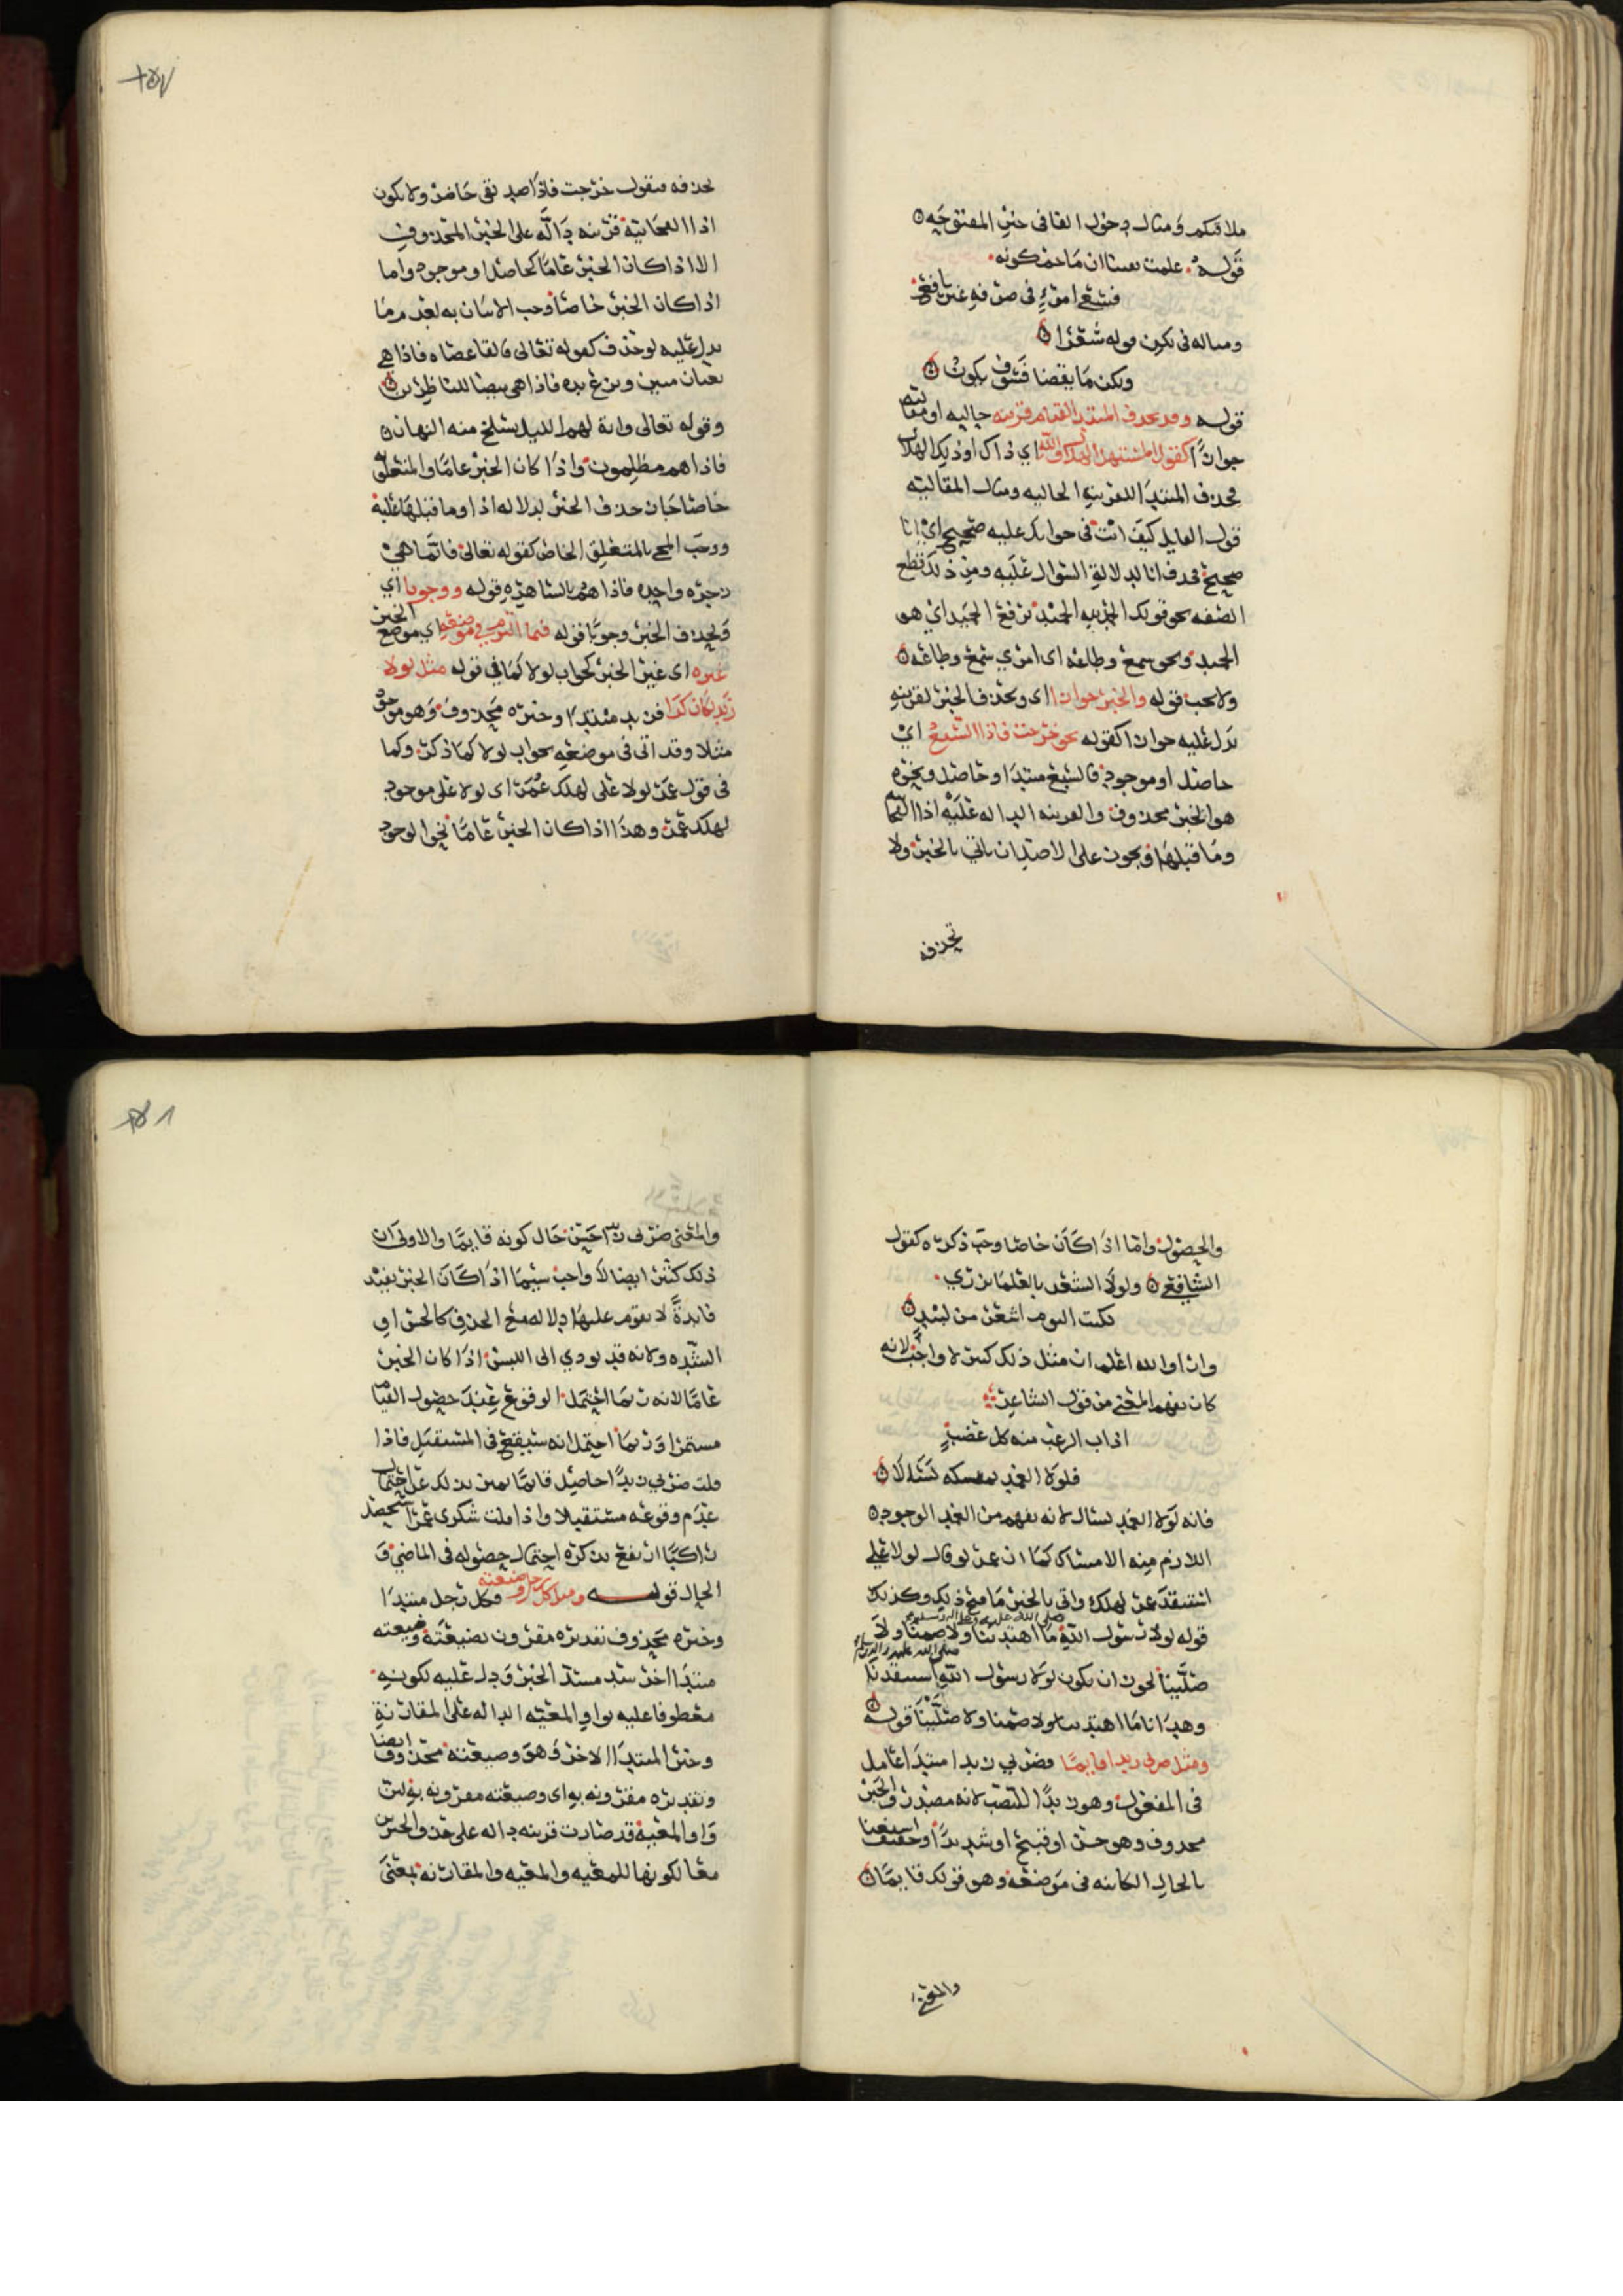 ملاقيكم ومثال دخول الفا في خبر المفتوحة
قوله علمت يقينا ان ما حم كونه
فسعي امرئ في صرفه غير نافع
ومثاله في لكن قوله شعرا
ولكن ما يقضا فسوف يكون
قوله وقد يحذف المبتدا لقيام قرينه حاليه او مقاليه
جوازا كقول المستهل الهلال والله اي ذاك او ذلك الهلال
فحذف المبتدا للقرينه الحاليه ومثال المقاليه
قول القايل كيف انت في جوابك عليه صحيح اي انا
صحيح فحذف انا لدلالة السوال عليه ومن ذلك قطع
الصفه نحو قولك الحمد لله الحميد برفع الحميد اي هو
الحميد ونحو سمع وطاعه اى امري سمع وطاعه
ولا يجب قوله والخبر جوازا اى ويحذف الخبر لقرينه
تدل عليه جوازا كقوله نحو خرجت فاذا السبع اي
حاصل او موجود فالسبع مبتدا وحاصل ونحوه
هو الخبر محذوف والقرينه الداله عليه اذا الفجائيه
وما قبلها ويجوز على الاصل ان ياتي بالخبر ولا
تحذفه
تحذفه فتقول خرجت فاذا صديقي حاضر ولا يكون
اذا الفجائية قرينه دالة على الخبر المحذوف
الا اذا كان الخبر عاما كحاصل او موجود واما
اذا كان الخبر خاصا وجب الاتيان به لعدم ما
يدل عليه لو حذف كقوله تعالى فالقا عصاه فاذا هي
ثعبان مبين ونزع يده فاذا هي بيضا للناظرين
وقوله تعالى واية لهم الليل نسلخ منه النهار
فاذا هم مظلمون واذا كان الخبر عاما والمتعلق
خاصا جاز حذف الخبر لدلاله اذا وما قبلها عليه
ووجب المجي بالمتعلق الخاص كقوله تعالى فانما هي
زجرة واحده فاذا هم بالساهره قوله ووجوبا اي
ويحذف الخبر وجوبا قوله فيما التزم في موضعه اي موضع الخبر
غيره اى غير الخبر كجواب لولا كما في قوله مثل لولا
زيد لكان كذا فزيد مبتدا وخبره محذوف وهو موجود
مثلا وقد اتى في موضعه بجواب لولا كما ذكر وكما
في قول عمر لولا على لهلك عمر اى لولا على موجود
لهلك عمر وهذا اذا كان الخبر عاما نحو الوجود
والحصول واما اذا كان خاصا وجب ذكره كقول
الشافعي ولولا الشعر بالعلما يزري
لكنت اليوم اشعر من لبيد
كان يفهم المعنى من قول الشاعر
اذاب الرعب منه كل عضب
فلولا الغمد يمسكه لسالا
فانه لولا الغمد لسال لانه يفهم من الغمد الوجود
اللازم منه الامساك كما ان عمر لو قال لولا علي
قوله لولا رسول الله صلى الله عليه وعلى اله وسلم ما اهتدينا ولا صمنا ولا
صلينا
ومثل ضربي زيدا قايما فضربي زيدا مبتدا عامل
في المفعول وهو زيدا النصب لانه مصدر والخبر
محذوف وهو حسن او قبيح او شديد او خفيف استغنا
بالحال الكاينه في موضعه وهو قولك قايما
والمعنى
والمعنى ضربي زيدا حسن حال كونه قايما والاولى ان
ذلك كثير ايضا لا واجب سيما اذا كان الخبر يفيد
فايدة لا يقوم عليها دلاله مع الحذف كالحسن او
الشده ولانه قد يودي الى اللبس اذا كان الخبر
عاما لانه ربما احتمل الوقوع عند حصول القيام
مستمرا وربما احتمل انه سيقع في المستقبل فاذا
قلت ضربي زيدا حاصل قايما
عدم وقوعه مستقبلا واذا قلت شكري عمرا
راكبا ارتفع بذكره احتمال حصوله في الماضي و
الحال قوله ومثل كل رجل وضيعته وكل رجل مبتدا
وخبره محذوف تقديره مقرون بضيعته وضيعته
مبتدا اخر سد مسد الخبر ودل عليه لكونه
معطوفا عليه بواو المعيه الداله على المقارنة
وخبر المبتدا الاخر وهو وضيعته محذوف ايضا
وتقديره مقرونه به اى وضيعته مقرونه به
واو المعيه قد صارت قرينه داله على حذف الخبرين
معا لكونها للمعيه والمعيه والمقارنه بمعنى